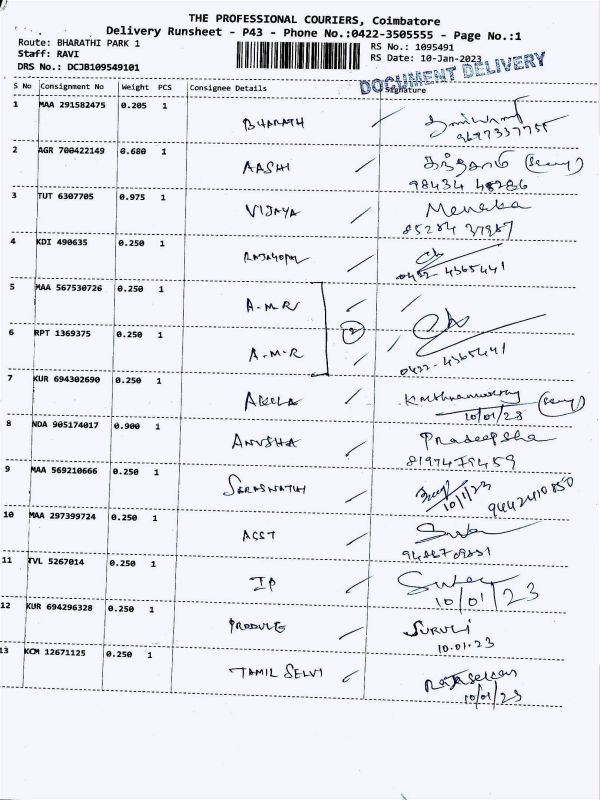 THE PROFESSIONAL COURIERS, Coimbatore
Delivery Runsheet - P43 - Phone No.:0422-3505555 - Page No.:1
Route: BHARATHI PARK 1 RS No.: 1095491
Staff: RAVI RS Date: 10-Jan-2023
DRS No.: DCJB109549101
DOCUMENT DELIVERY
S No Consignment No Weight PCS Consignee Details Signature
1 MAA 291582475 0.205 1 BHARATH
9677337755
2 AGR 700422149 0.680 1 AASHI
98434 48286
3 TUT 6307705 0.975 1 VIJAYA Menaka
85284 37987
4 KDI 490635 0.250 1 RAJAGOPAL
0422-4365441
5 MAA 567530726 0.250 1 A-M-R
2
6 RPT 1369375 0.250 1 A-M-R
0422-4365441
7 KUR 694302690 0.250 1 AKELA
10/01/23
8 NDA 905174017 0.900 1 ANUSHA Pradeepsha
8197479459
9 MAA 569210666 0.250 1 SARASWATHI
10/1/23 9442410850
10 MAA 297399724 0.250 1
11 TVL 5267014 0.250 1 IP
10/01/23
12 KUR 694296328 0.250 1 SURULI
10.01.23
13 KCM 12671125 0.250 1 TAMIL SELVI Rajasekar
10/01/23